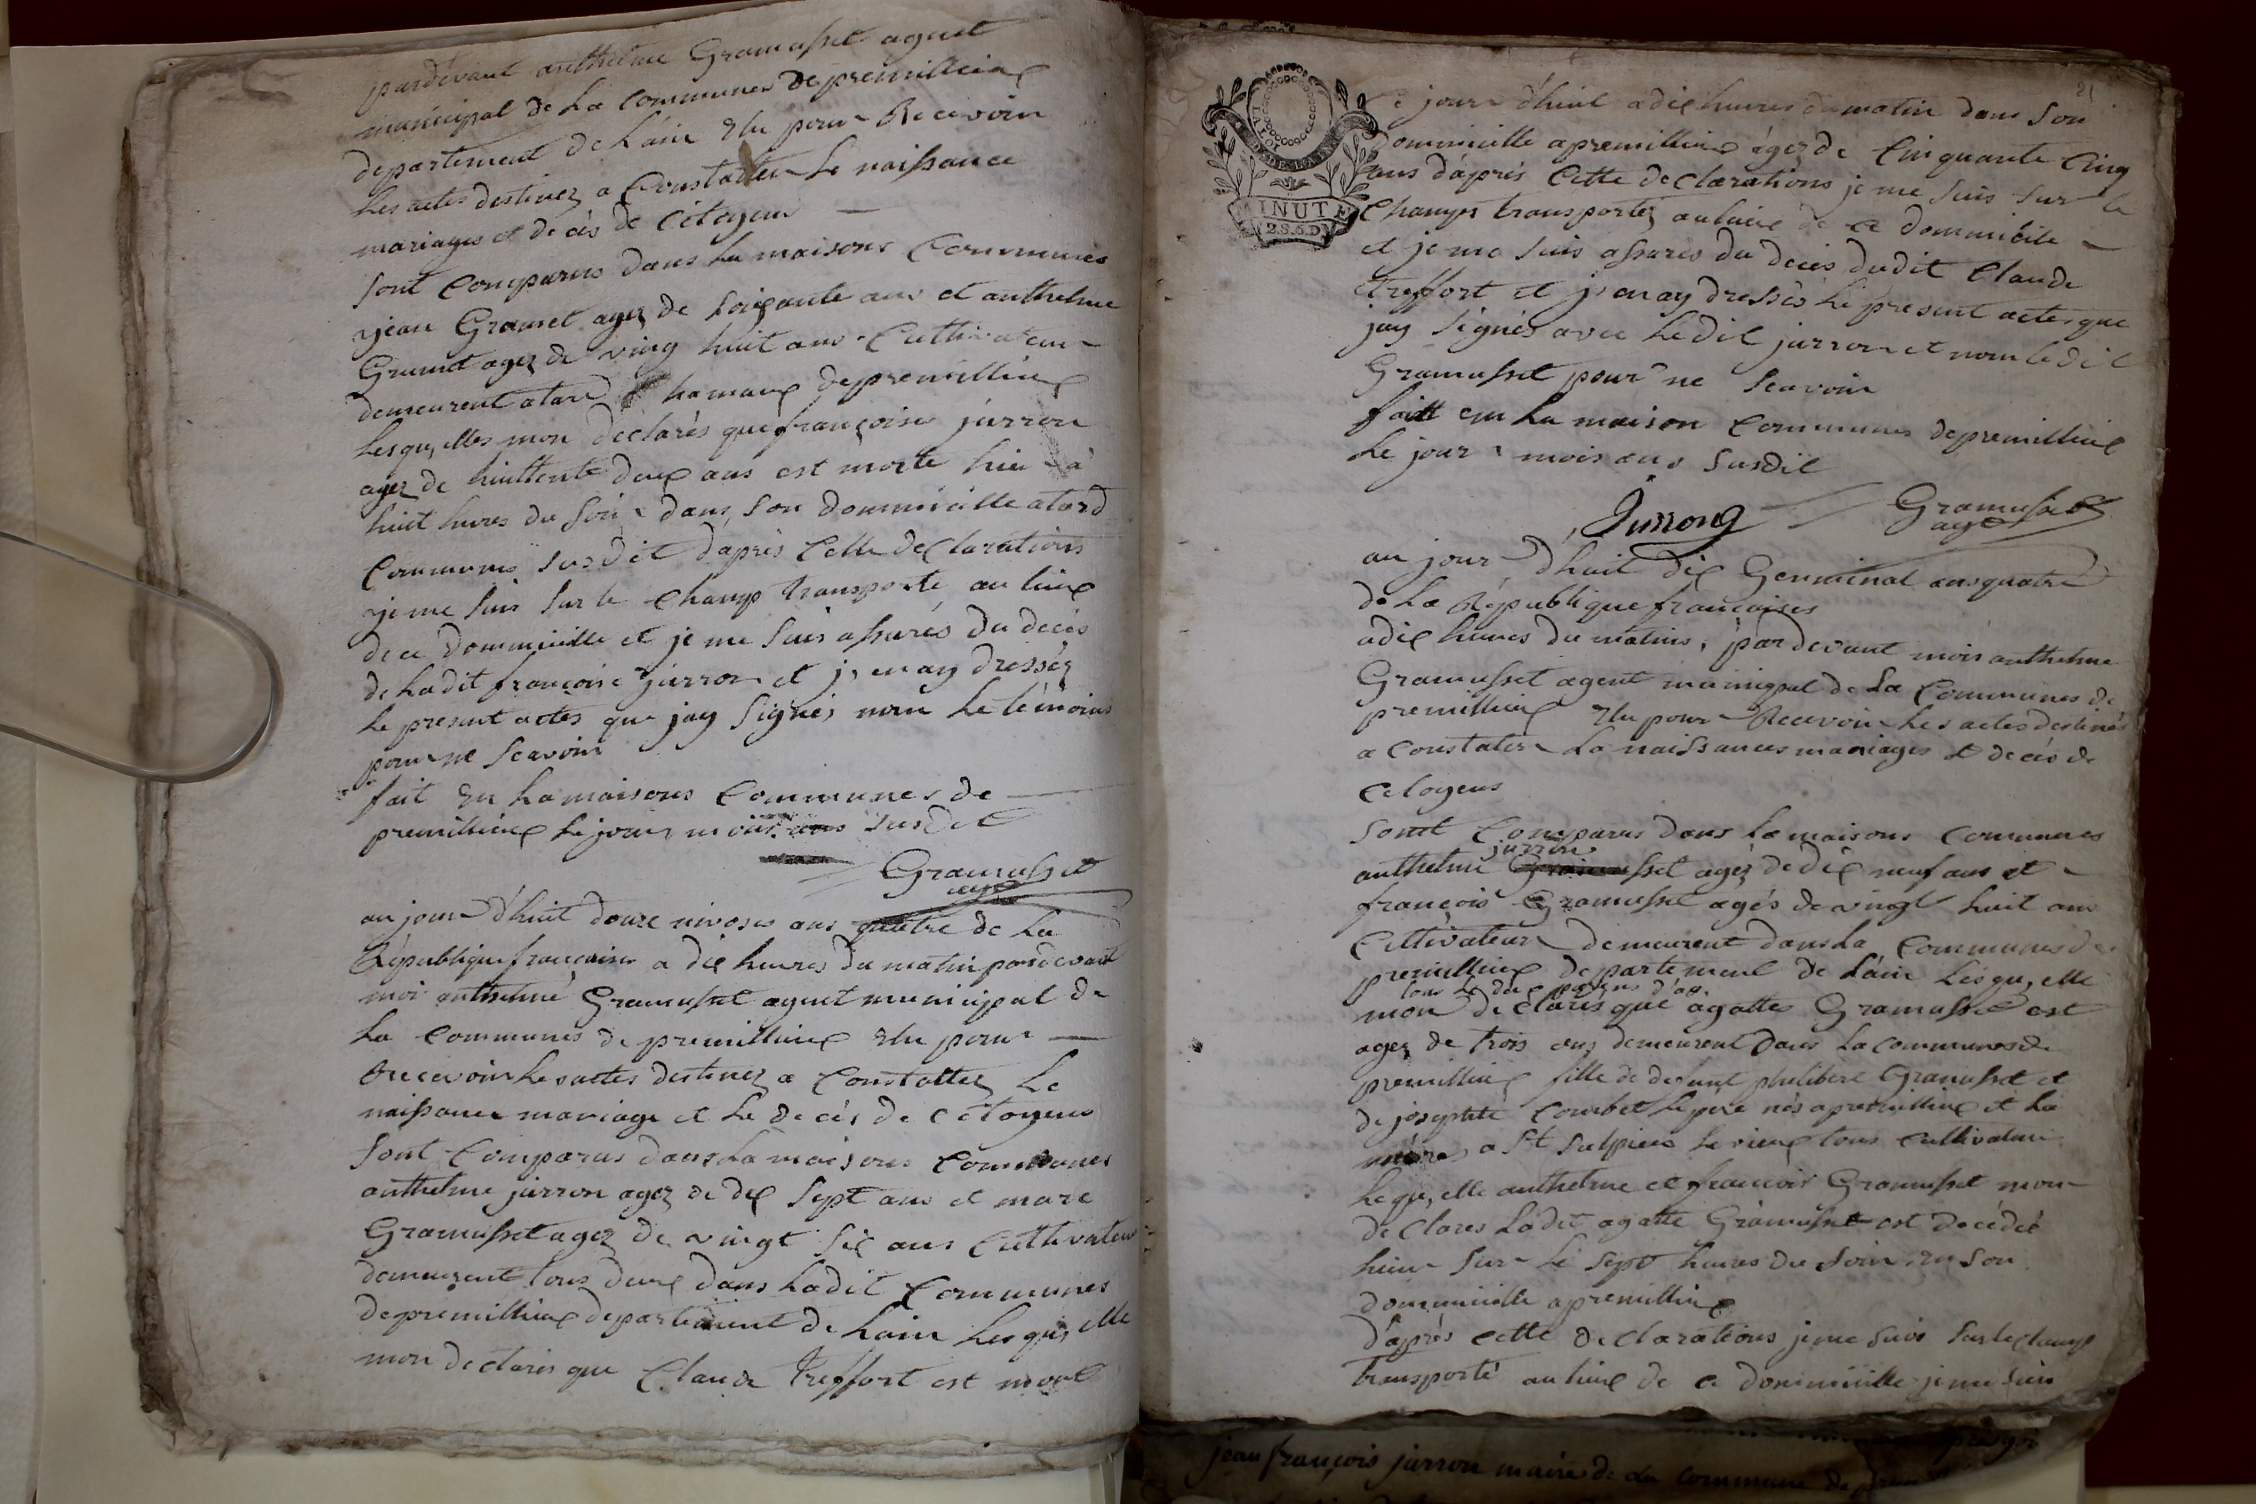 pardevant anthelme Gramusset agent
municipal de La Communes de premillieux
departement de L'ain Elu pour Recevoir
Les actes destinez a Constatter Le naissance
mariages et decés de Citoyens
sont Comparus dans La maisons Communes
jean Gramet agez de soixante ans et anthelme
Gramet agez de ving huit ans Cultivateur
demeurent a tard hamaux de premillieux
Lesqu,elles mon declarés que françoise jurron
agez de huittente deux ans est morte hier à
huit hures du soir dans son Dommicille a tard
Communes susdit d'après Cette declarations
je me suis sur le champ transporté au lieux
de ce Dommicille et je me suis assurés du decés
de Ladit francoise jurron et j,en ay dressez
Le present actes que jay signés non Le témoins
pour ne scavoir
fait En La maisons Communes de
premillieux Le jour mois ans susdit
Gramusset
agt
au jour d'huit douze nivoses ans quatre de La
République francaise a dix heures du matin pardevant
moi anthelme Gramusset agent municipal de
La Communes de premillieux Elu pour
Recevoir Les actes destinez a Constatter Le
naissance mariage et Le decés de Citoyens
sont Comparus dans La maisons Communes
anthelme jurron agez de dix sept ans et marc
Gramusset agez de vingt six ans Cultivateur
demeurent tous deux dans Ladit Communes
de premillieux departement de Lain Lesqu,elle
mon declarés que Claude Treffort est mort
21
Ce jour d'huit a dix hures du matin dans son
Dommicille a premillieux agez de Cinquante Cinq
ans d'après Cette declarations je me suis sur le
Champs transportez au lieux de ce dommicile
et je me suis assures du decés dudit Claude
Treffort et j,en ay dressés Le present actes que
jay signés avec Ledit jurron et non Ledit
Gramusset pour ne scavoir
faitt en La maison Communes de premillieux
Le jour mois ans susdit
MINUTE
2.S.6.D
Jurrong
Gramusset
agt
au jour d'huit dix Germinal ans quatre
de La République francaises
a dix hures du matins, par devant mois anthelme
Gramusset agent municipal de La Communes de
premillieux Elu pour Recevoir Les actes destinés
a Constater La naissances mariages et decés de
Citoyens
sont Comparus dans La maisons Communes
jurron
anthelme agez de dix neuf ans et
françois Gramusset agés de vingt huit ans
Cultivateur demeurent dans La Communes de
premillieux departement de L'ain Lesqu,elle
mon déclarés que agattes Gramusset est
agez de trois ans demeurent dans La communes de
premillieux fille de defunt philibert Gramusset et
de josephte Courbet Le père nés a premillieux et La
mère a St sulpice Le vieux tous Cultivateur
Lequ,elle anthelme et françois Gramusset mon
declares Ladit agatte Gramusset est decédée
hier sur Le sept heures du soir en son
dommicille a premillieux
d'après cette declarations je me suis sur le champ
transporté au lieux de ce dommicille je me suis
jean françois jurron maire de La commune de